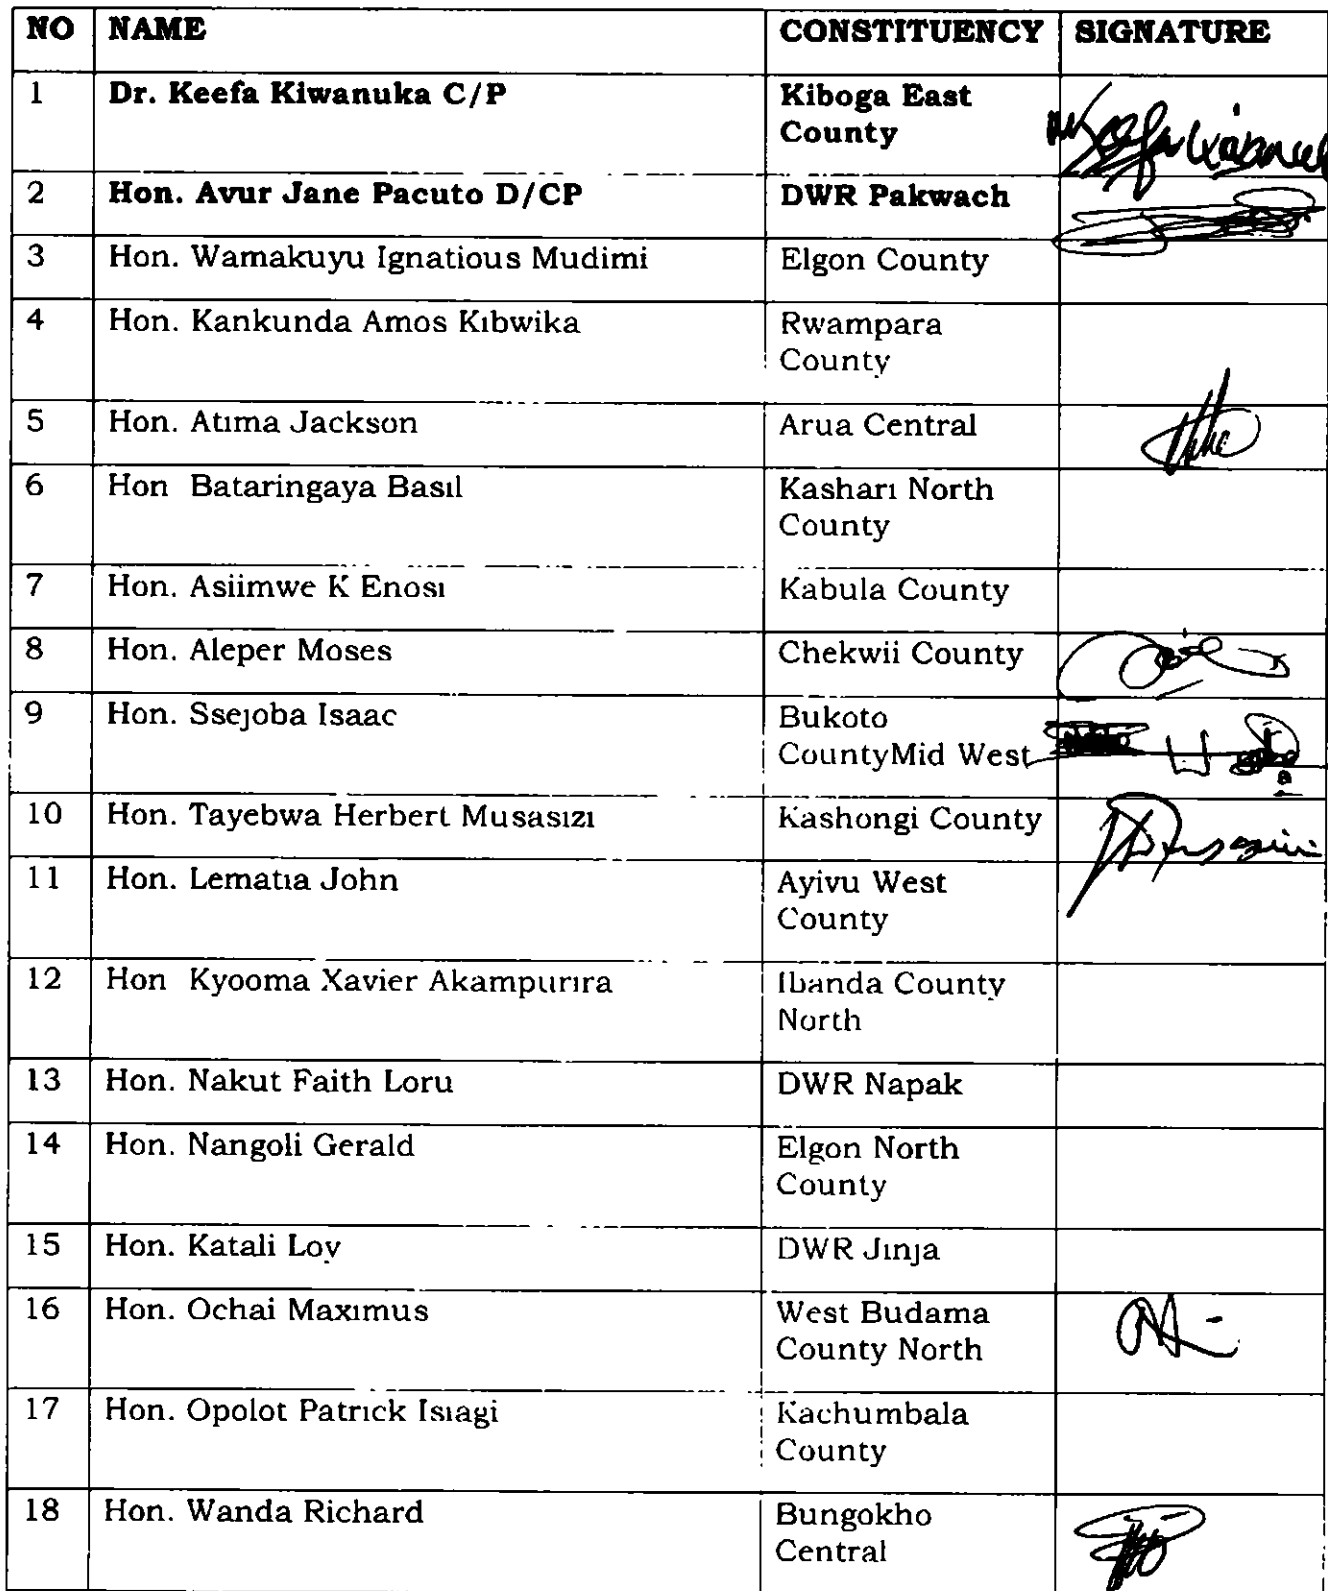 NO NAME CONSTITUENCY SIGNATURE
1 Dr. Keefa Kiwanuka C/P Kiboga East
County
2 Hon. Avur Jane Pacuto D/CP DWR Pakwach
3 Hon. Wamakuyu Ignatious Mudimi Elgon County
4 Hon. Kankunda Amos Kibwika Rwampara
County
5 Hon. Atima Jackson Arua Central
6 Hon Bataringaya Basil Kashari North
County
7 Hon. Asiimwe K Enosi Kabula County
8 Hon. Aleper Moses Chekwii County
9 Hon. Ssejoba Isaac Bukoto
CountyMid West
10 Hon. Tayebwa Herbert Musasizi Kashongi County
11 Hon. Lematia John Ayivu West
County
12 Hon Kyooma Xavier Akampurira Ibanda County
North
13 Hon. Nakut Faith Loru DWR Napak
14 Hon. Nangoli Gerald Elgon North
County
15 Hon. Katali Loy DWR Jinja
16 Hon. Ochai Maximus West Budama
County North
17 Hon. Opolot Patrick Isiagi Kachumbala
County
18 Hon. Wanda Richard Bungokho
Central